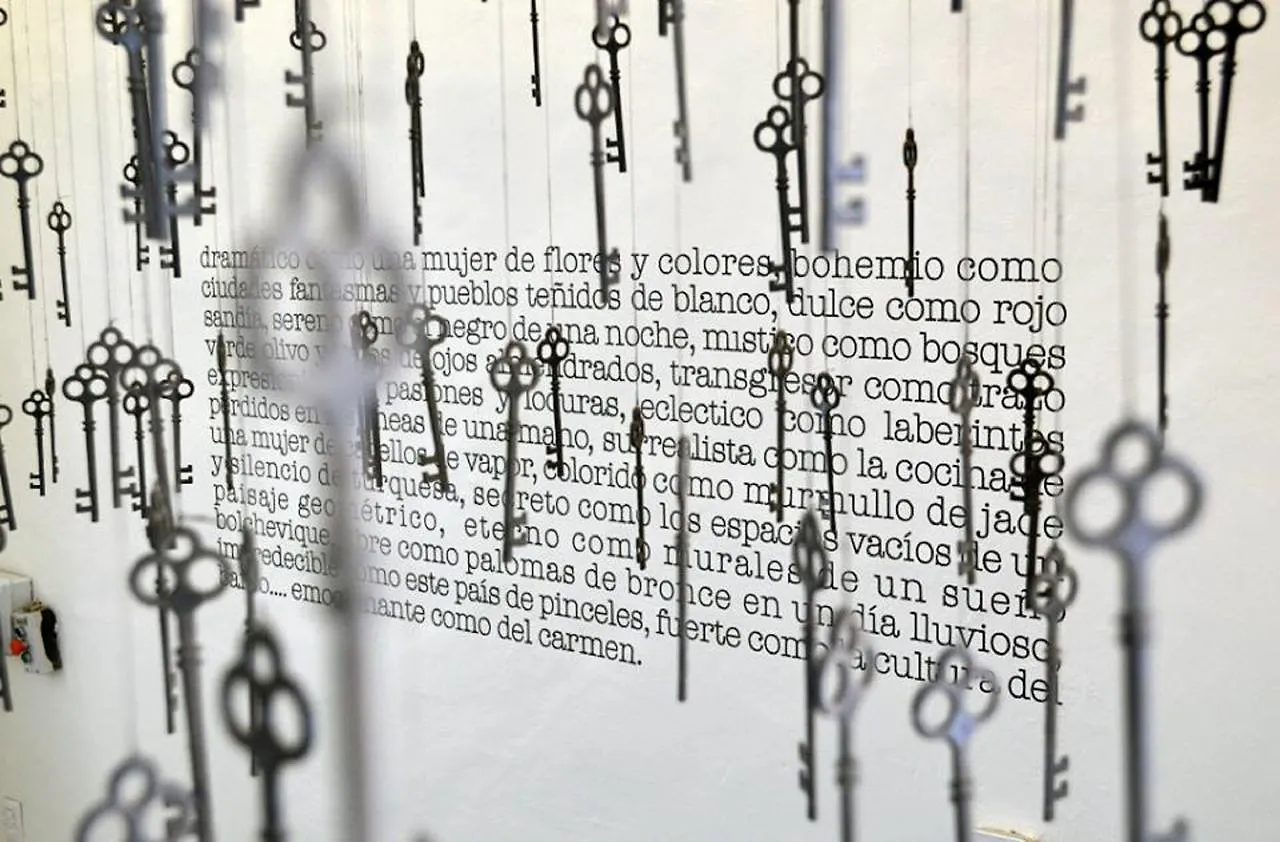 dramático como una mujer de flores y colores, bohemio como
ciudades fantasmas y pueblos teñidos de blanco, dulce como rojo
sandía, sereno como negro de una noche, mistico como bosques
verde olivo y de ojos almendrados, transgresor como trazo
expresi pasiones y locuras, eclectico como laberintos
perdidos en lineas de una mano, surrealista como la cocina de
una mujer de cabellos de vapor, colorido como murmullo de jade
y silencio de turquesa, secreto como los espacios vacíos de un
paisaje geométrico, eterno como murales de un sueño
bolchevique, libre como palomas de bronce en un día lluvioso,
impredecible como este país de pinceles, fuerte como la cultura del
.... emocionante como del carmen.